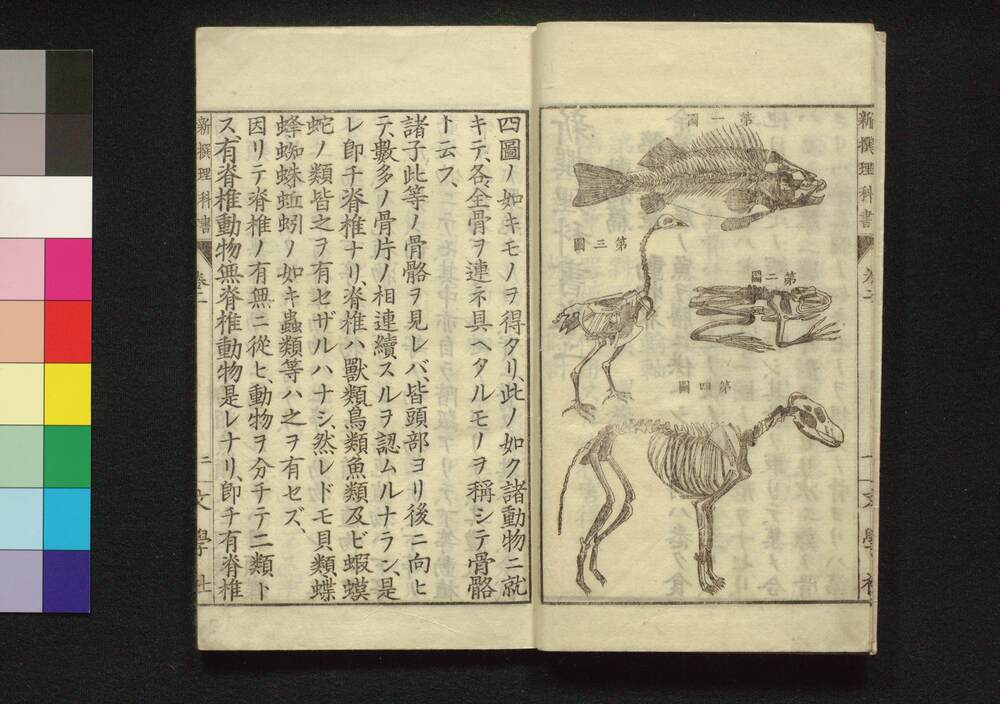 新撰理科書
卷二
一
文學社
第一圖
第二圖
第三圖
第四圖
四圖ノ如キモノヲ得タリ、此ノ如ク諸動物ニ就
キテ、各、全骨ヲ連ネ具ヘタルモノヲ稱シテ骨骼
ト云フ、
諸子此等ノ骨骼ヲ見レバ、皆頭部ヨリ後ニ向ヒ
テ、數多ノ骨片ノ相連續スルヲ認ムルナラン、是
レ卽チ脊椎ナリ、脊椎ハ獸類、鳥類、魚類及ビ蝦蟆
蛇ノ類皆之ヲ有セザルハナシ、然レドモ貝類蝶
蜂蜘蛛蚯蚓ノ如キ蟲類等ハ之ヲ有セズ、
因リテ脊椎ノ有無ニ從ヒ、動物ヲ分チテ二類ト
ス、有脊椎動物無脊椎動物是レナリ、卽チ有脊椎
新撰理科書
卷二
二
文學社